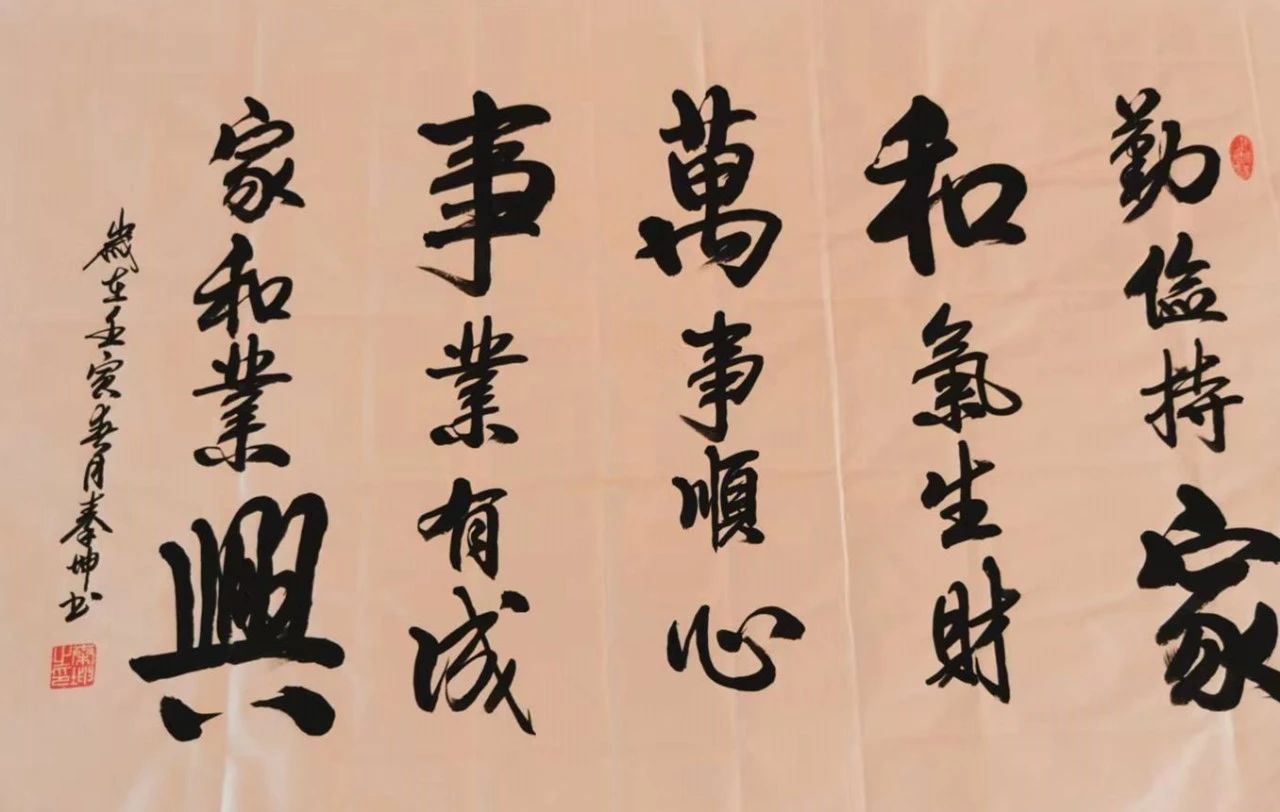 勤儉持家
和氣生財
萬事順心
事業有成
家和業興
歲在壬寅春月秦坤书